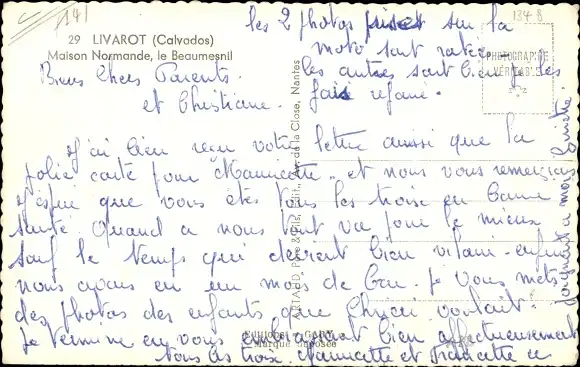 134 B
29 LIVAROT (Calvados)
Maison Normande, le Beaumesnil
PHOTOGRAPHIE
VÉRITABLE
les 2 photos prises sur la
moto sont ratés
les autres sont bien je les
fais refaire.
Biens Chers Parents.
et Christiane.
J'ai bien reçu votre lettre aussi que la
jolie carte pour Mauricette.. et nous vous remercions
J'espère que vous êtes tous les trois en bonne
santé. Quand a nous tout va pour le mieux
sauf le temps qui devient bien vilain. enfin
nous avons eu un mois de beau. Je vous mets
des photos des enfants que voulait.
Je termine en vous embrassant bien affectueusement
tous les trois. Mauricette et Francette se
joignent a moi
Pére & Fils, Edit., de la Close, Nantes
Marque Déposée